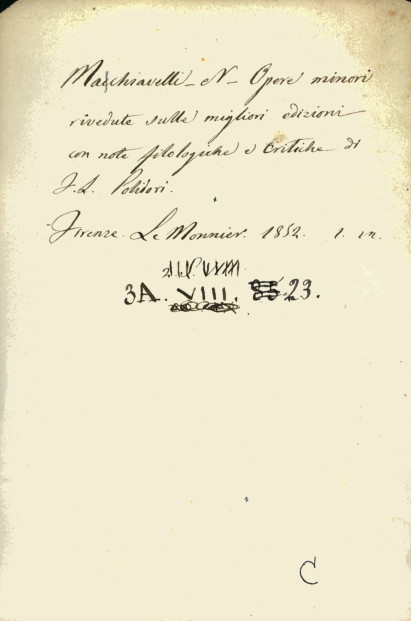 Machiavelli - N - Opere minori
rivedute sulle migliori edizioni
con note filologiche e critiche di
F. L. Polidori.
Firenze. Le Monnier. 1852. 1. in.
3A. VIII. 23.
C